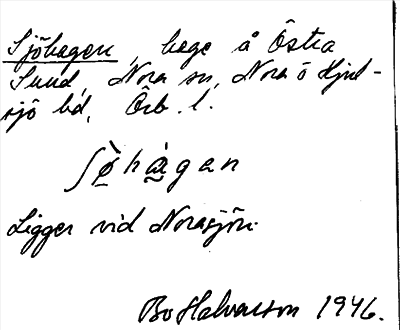 Sjöhagen, hage å Östra
Sund, Nora sn, Nora o Hjul-
sjö bd, Örb. l.
ʃø̀hàgan
Ligger vid Norasjön.
Bo Halvarson 1946.